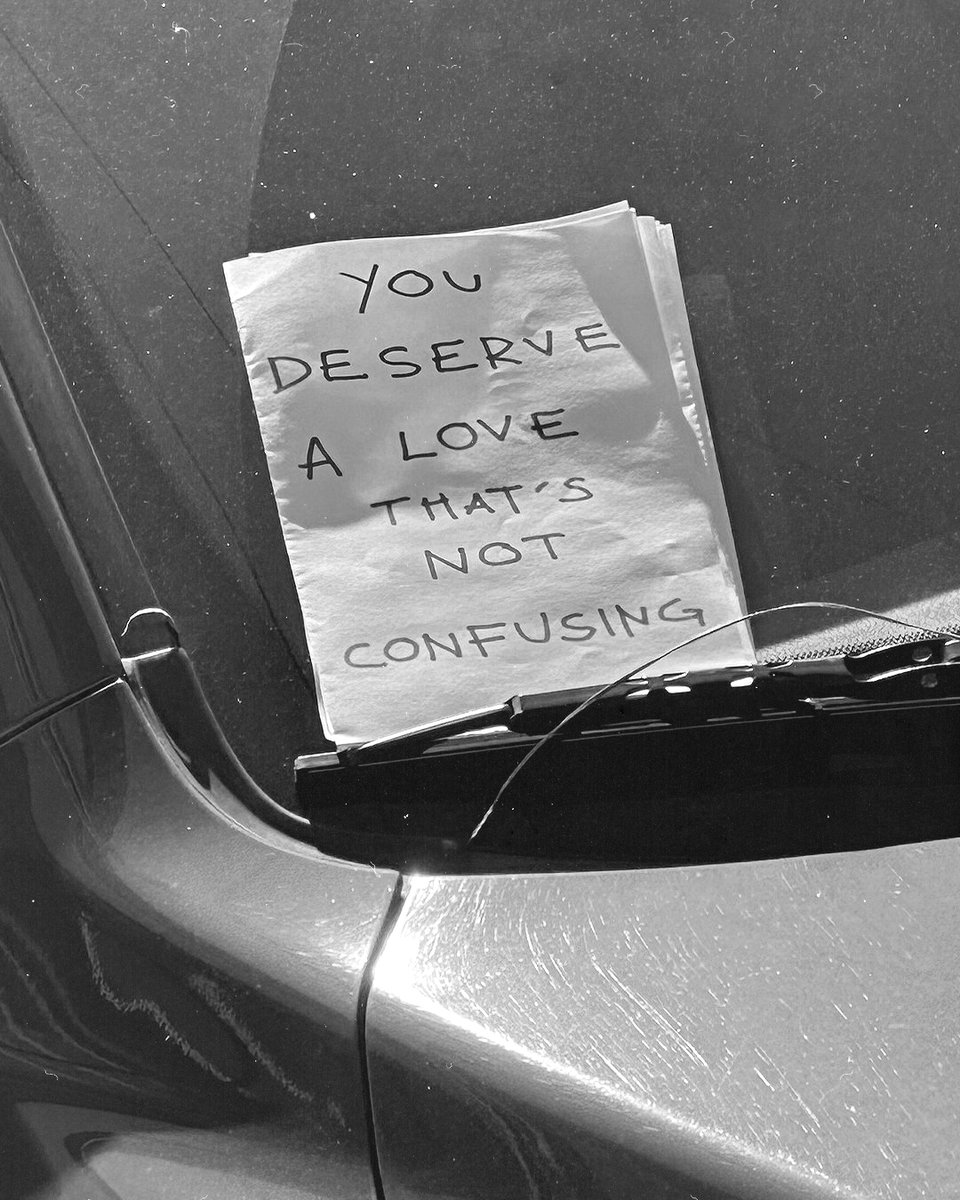 YOU
DESERVE
A LOVE
THAT'S
NOT
CONFUSING